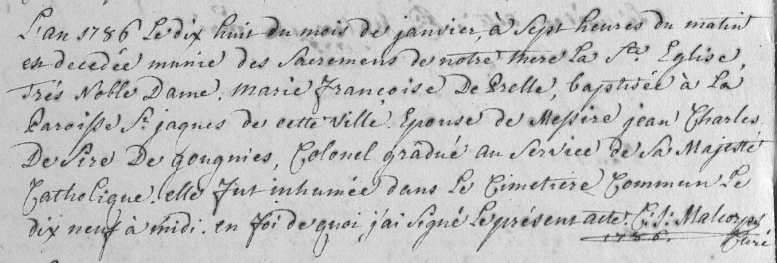 L'an 1786 Le dix huit du mois de janvier, à Sept heures du matin
est decedée munie des Sacremens de notre mere La Ste. Eglise,
Trés Noble Dame. Marie françoise De Prelle, baptisée à La
Paroisse St. jaques de cette Ville. Epouse de Messire jean Charles
De Pire De gougnies, Colonel grâdué au Service de Sa Majesté
Catholique. elle fut inhumée dans Le Cimetiere Commun Le
dix neuf à midi. en foi de quoi, j'ai Signé Le présent acte. C: J: Malcorps
1786. Curé